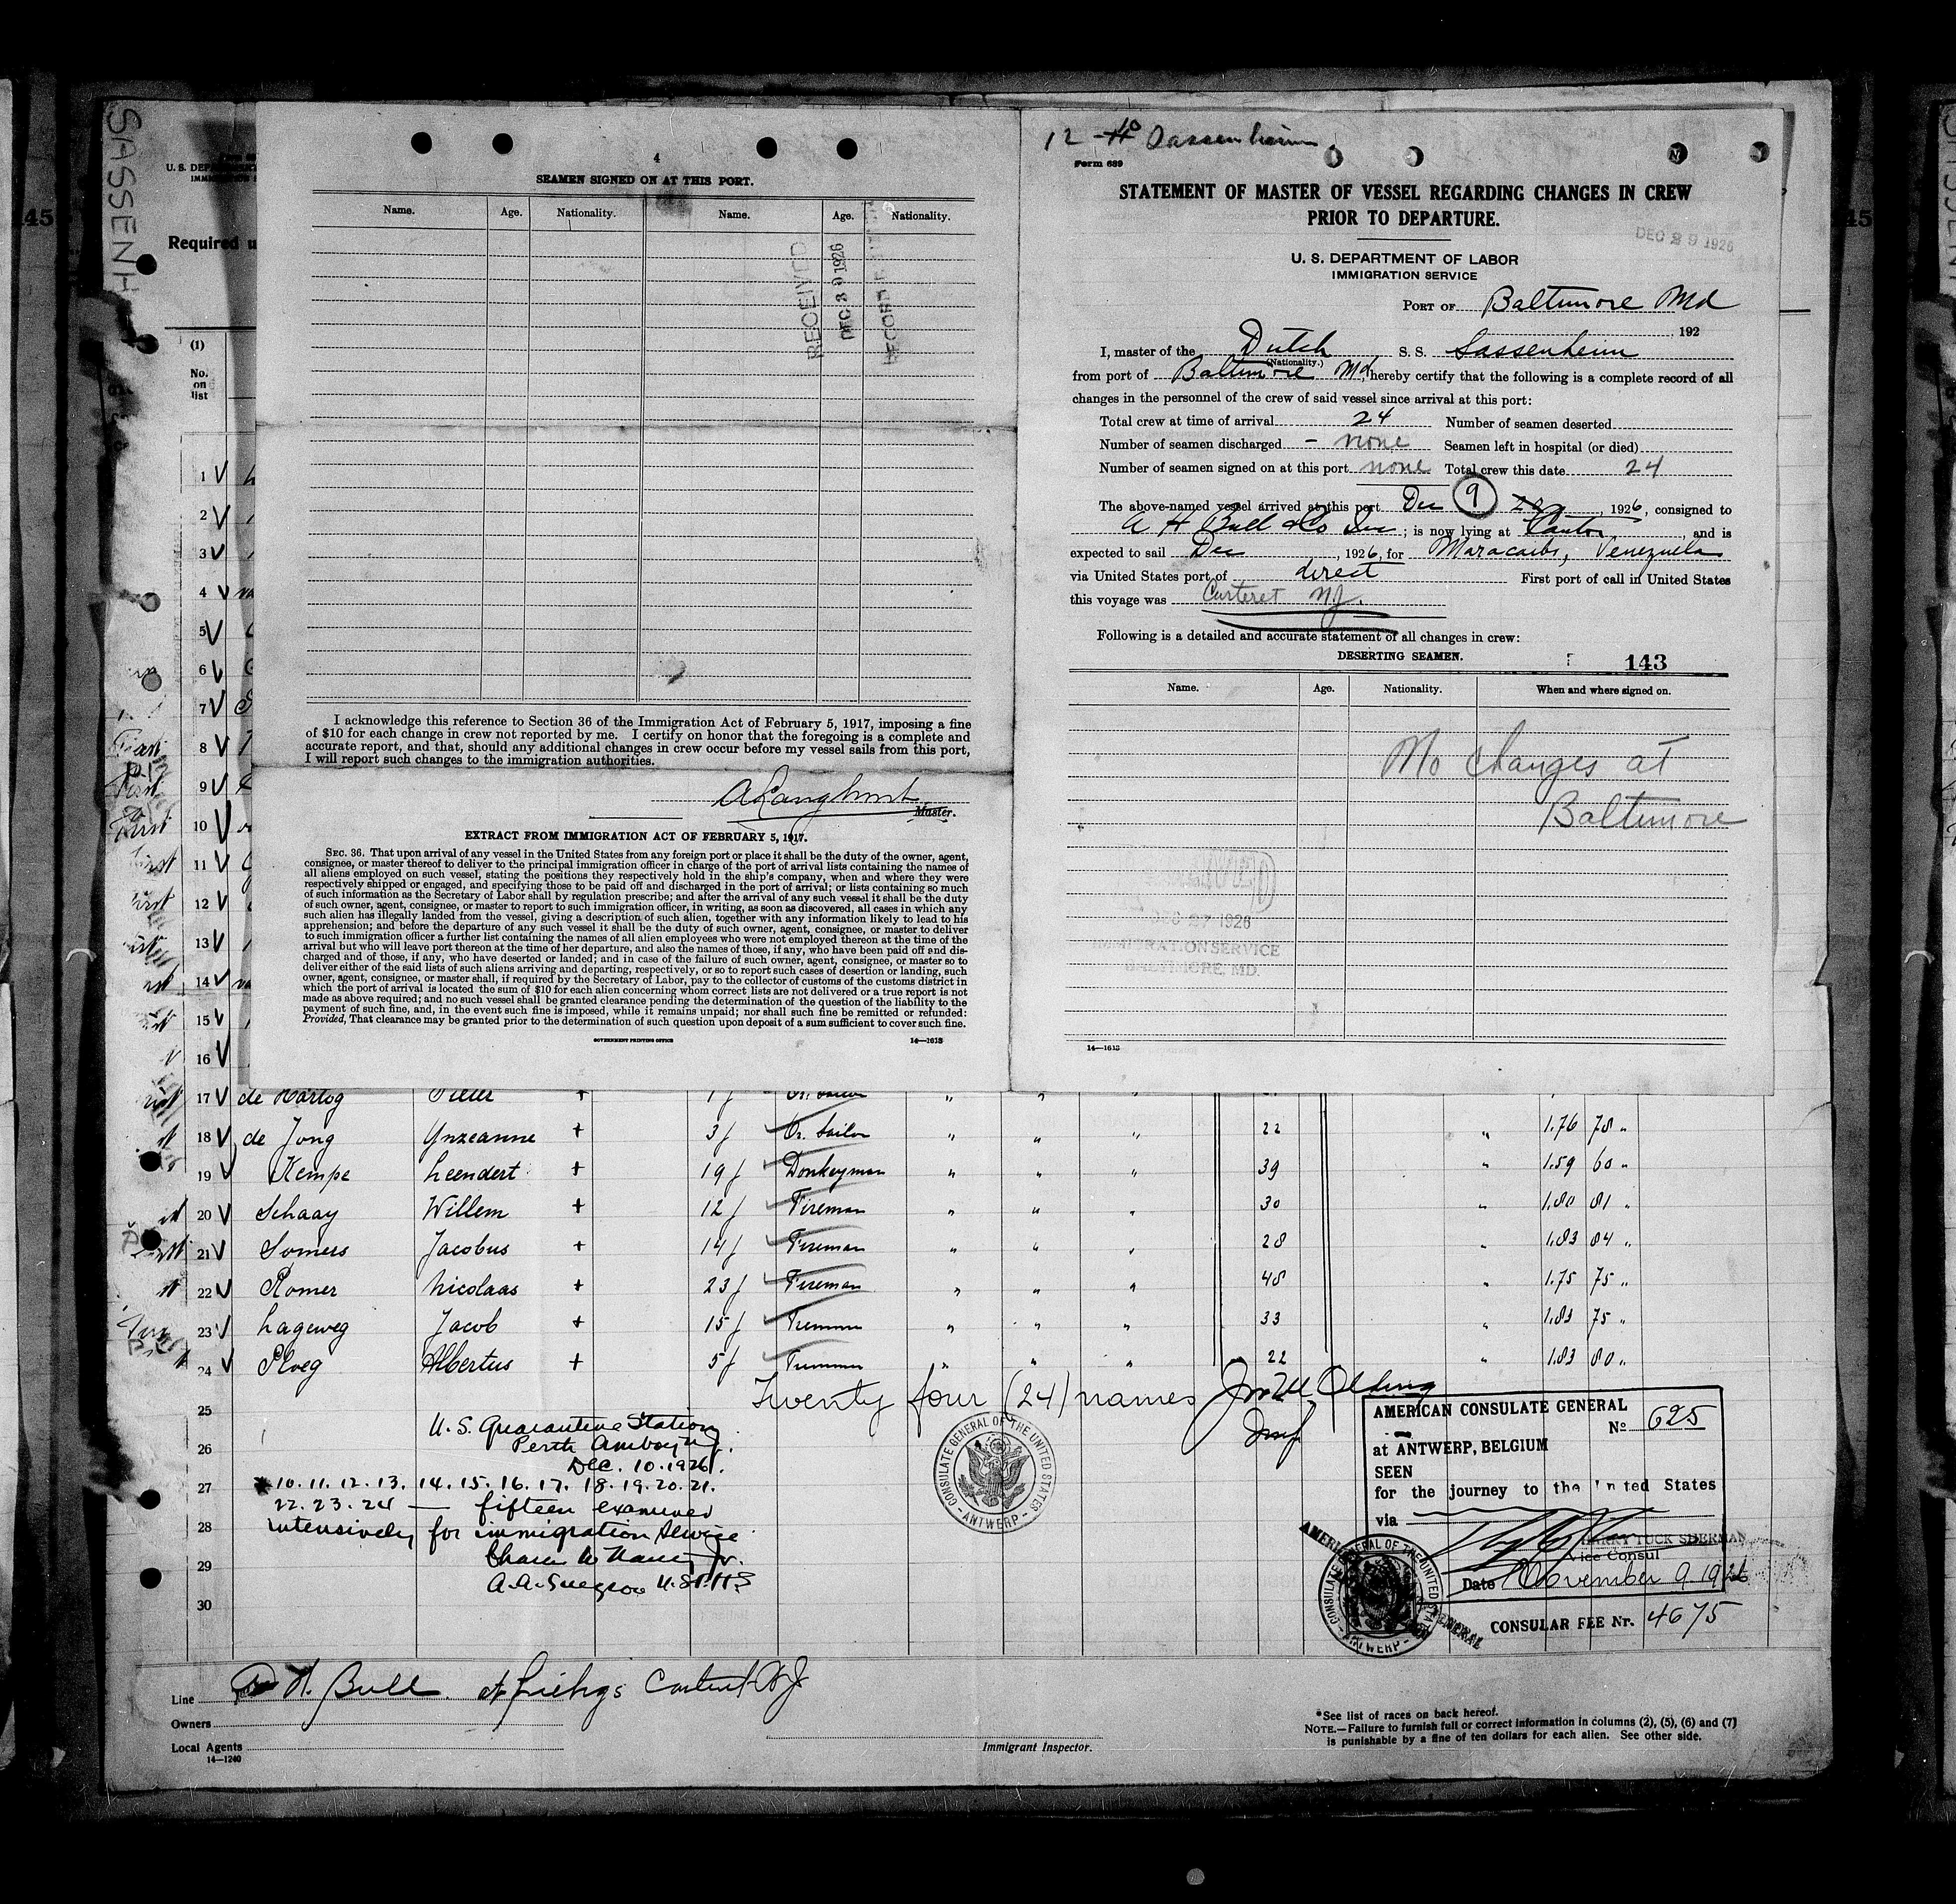 SASSENH
45
U. S. DEP
Required u
(1)
No.
on
list
4
SEAMEN SIGNED ON AT THIS PORT.
Name. Age. Nationality. Name. Age. Nationality.
RECEIVED
DEC 30 1926
I acknowledge this reference to Section 36 of the Immigration Act of February 5, 1917, imposing a fine
of $10 for each change in crew not reported by me. I certify on honor that the foregoing is a complete and
accurate report, and that, should any additional changes in crew occur before my vessel sails from this port,
I will report such changes to the immigration authorities.
Master.
EXTRACT FROM IMMIGRATION ACT OF FEBRUARY 5, 1917.
SEC. 36. That upon arrival of any vessel in the United States from any foreign port or place it shall be the duty of the owner, agent,
consignee, or master thereof to deliver to the principal immigration officer in charge of the port of arrival lists containing the names of
all aliens employed on such vessel, stating the positions they respectively hold in the ship's company, when and where they were
respectively shipped or engaged, and specifying those to be paid off and discharged in the port of arrival; or lists containing so much
of such information as the Secretary of Labor shall by regulation prescribe; and after the arrival of any such vessel it shall be the duty
of such owner, agent, consignee, or master to report to such immigration officer, in writing, as soon as discovered, all cases in which any
such alien has illegally landed from the vessel, giving a description of such alien, together with any information likely to lead to his
apprehension; and before the departure of any such vessel it shall be the duty of such owner, agent, consignee, or master to deliver
to such immigration officer a further list containing the names of all alien employees who were not employed thereon at the time of the
arrival but who will leave port thereon at the time of her departure, and also the names of those, if any, who have been paid off and dis-
charged and of those, if any, who have deserted or landed; and in case of the failure of such owner, agent, consignee, or master so to
deliver either of the said lists of such aliens arriving and departing, respectively, or so to report such cases of desertion or landing, such
owner, agent, consignee, or master shall, if required by the Secretary of Labor, pay to the collector of customs of the customs district in
which the port of arrival is located the sum of $10 for each alien concerning whom correct lists are not delivered or a true report is not
made as above required; and no such vessel shall be granted clearance pending the determination of the question of the liability to the
payment of such fine, and, in the event such fine is imposed, while it remains unpaid; nor shall such fine be remitted or refunded:
Provided, That clearance may be granted prior to the determination of such question upon deposit of a sum sufficient to cover such fine.
GOVERNMENT PRINTING OFFICE 14—1613
12 Sassenheim
Form 689
STATEMENT OF MASTER OF VESSEL REGARDING CHANGES IN CREW
PRIOR TO DEPARTURE.
DEC 29 1926
U. S. DEPARTMENT OF LABOR
IMMIGRATION SERVICE
PORT OF Baltimore Md
192
I, master of the Dutch S. S. Sassenheim
(Nationality.)
from port of Baltimore Md, hereby certify that the following is a complete record of all
changes in the personnel of the crew of said vessel since arrival at this port:
Total crew at time of arrival 24 Number of seamen deserted
Number of seamen discharged - none Seamen left in hospital (or died)
Number of seamen signed on at this port none Total crew this date 24
The above-named vessel arrived at this port Dec 9 , 1926, consigned to
A H Bull & Co Inc ; is now lying at Canton , and is
expected to sail Dec , 1926, for Maracaibo, Venezuela
via United States port of direct First port of call in United States
this voyage was Carteret NJ.
Following is a detailed and accurate statement of all changes in crew:
DESERTING SEAMEN. 143
Name. Age. Nationality. When and where signed on.
No changes at
Baltimore
1926
IMMIGRATION SERVICE
BALTIMORE, MD.
14—1613
1 V
2 V
3 V
4 V
5 V
6 V
7 V
8 V
9 V
10 V
11 V
12 V
13 V
14 V
15 V
16 V
17 V de Hartog Pieter +
18 V de Jong Ynzeanne + 3 j Or. Sailor " " " 22 " 1.76 78 "
19 V Kempe Leendert + 19 j Donkeyman " " " 39 " 1.59 60 "
20 V Schaay Willem + 12 j Fireman " " " 30 " 1.80 81 "
21 V Somers Jacobus + 14 j Fireman " " " 28 " 1.83 84 "
22 V Romer Nicolaas + 23 j Fireman " " " 48 " 1.75 75 "
23 V Lageweg Jacob + 15 j Tremmer " " " 33 " 1.83 75 "
24 V Ploeg Albertus + 5 j Tremmer " " " 22 " 1.83 80 "
Twenty four (24) names
25
26
27
28
29
30
U. S. Quarantine Station
Perth Amboy N.J.
Dec. 10. 1926.
10. 11. 12. 13. 14. 15. 16. 17. 18. 19. 20. 21.
22. 23. 24 — fifteen examined
intensively for immigration Service
CONSULATE GENERAL OF THE UNITED STATES
ANTWERP
AMERICAN CONSULATE GENERAL
No 625
at ANTWERP, BELGIUM
SEEN
for the journey to the United States
via
HARRY TUCK SHERMAN
Vice Consul
Date November 9 1926
CONSULAR FEE Nr. 4675
Line A. H. Bull
Owners
Local Agents
14—1240
Immigrant Inspector.
*See list of races on back hereof.
NOTE.—Failure to furnish full or correct information in columns (2), (5), (6) and (7)
is punishable by a fine of ten dollars for each alien. See other side.